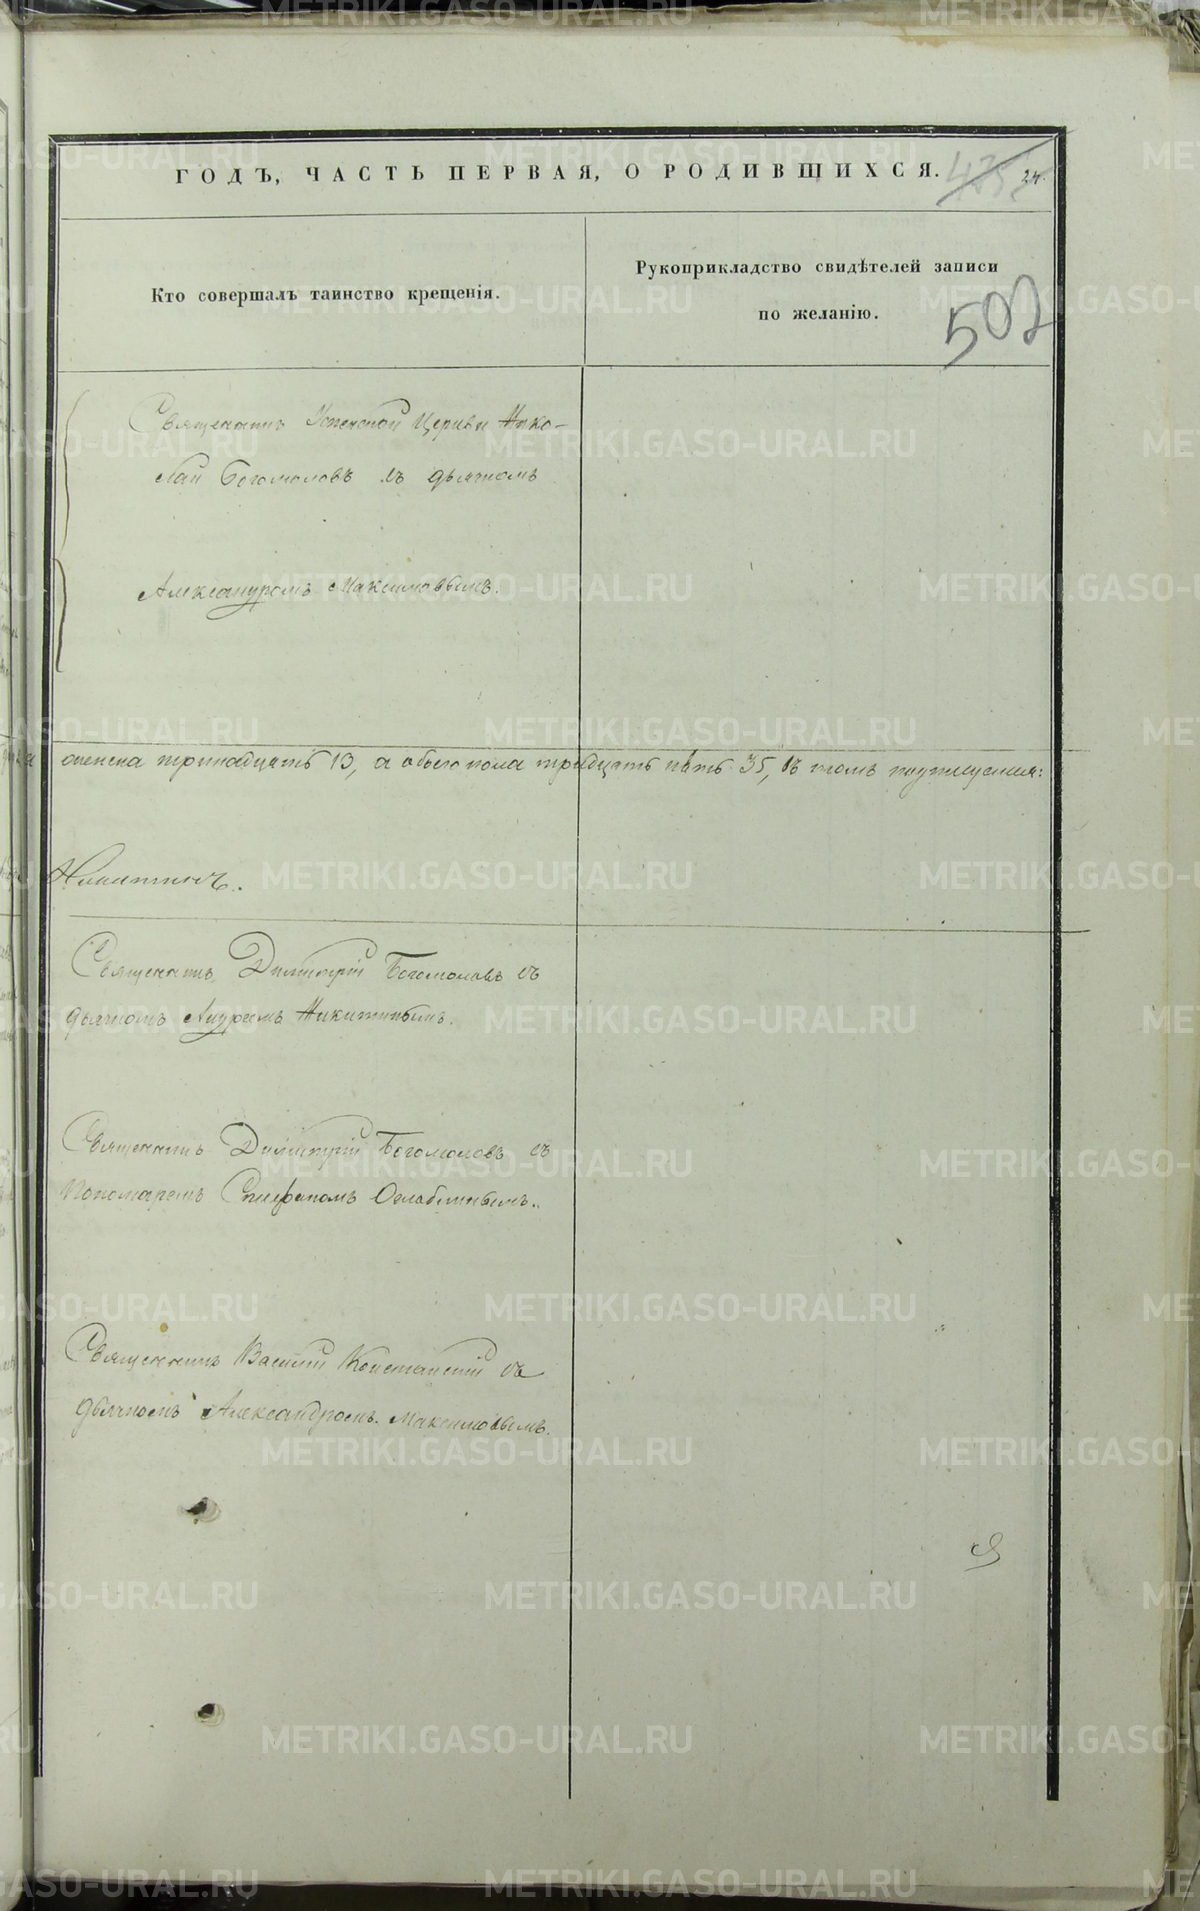 ГОДЪ, ЧАСТЬ ПЕРВАЯ, О РОДИВШИХСЯ.
24.
Кто совершалъ таинство крещенія.
Рукоприкладство свидѣтелей записи
по желанію.
502
Священникъ Успенской Церкви Нико-
лай Богомоловъ съ дьячкомъ
Александромъ Максимовымъ.
женска тринадцать 13, а обоего пола тридцать пять 35, въ томъ
Никитинъ.
Священникъ Димитрій Богомоловъ съ
дьячкомъ Андреемъ Никитинымъ.
Священникъ Димитрій Богомоловъ съ
Пономаремъ
Священникъ Василій съ
дьячкомъ Александромъ Максимовымъ.
METRIKI.GASO-URAL.RU